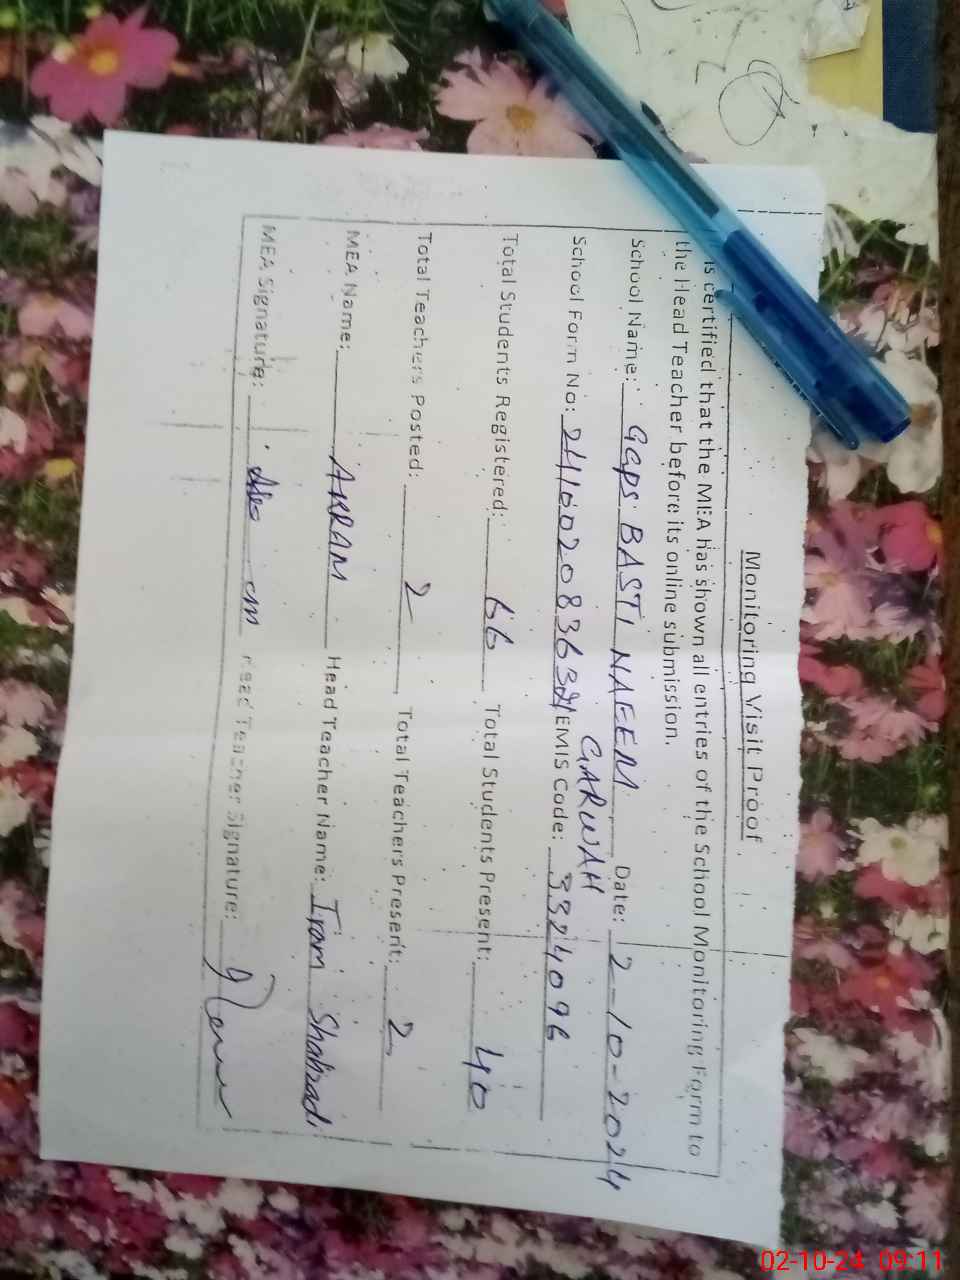 Monitoring Visit Proof
is certified that the MEA has shown all entries of the School Monitoring Form to
the Head Teacher before its online submission.
School Name: GGPS BASTI NAEEM Date: 2-10-2024
GARWAH
School Form No: EMIS Code: 33240096
Total Students Registered: 66 Total Students Present: 40
Total Teachers Posted: 2 Total Teachers Present: 2
MEA Name: AKRAM Head Teacher Name: Iram Shahzadi
MEA Signature: Head Teacher Signature:
02-10-24 09:11